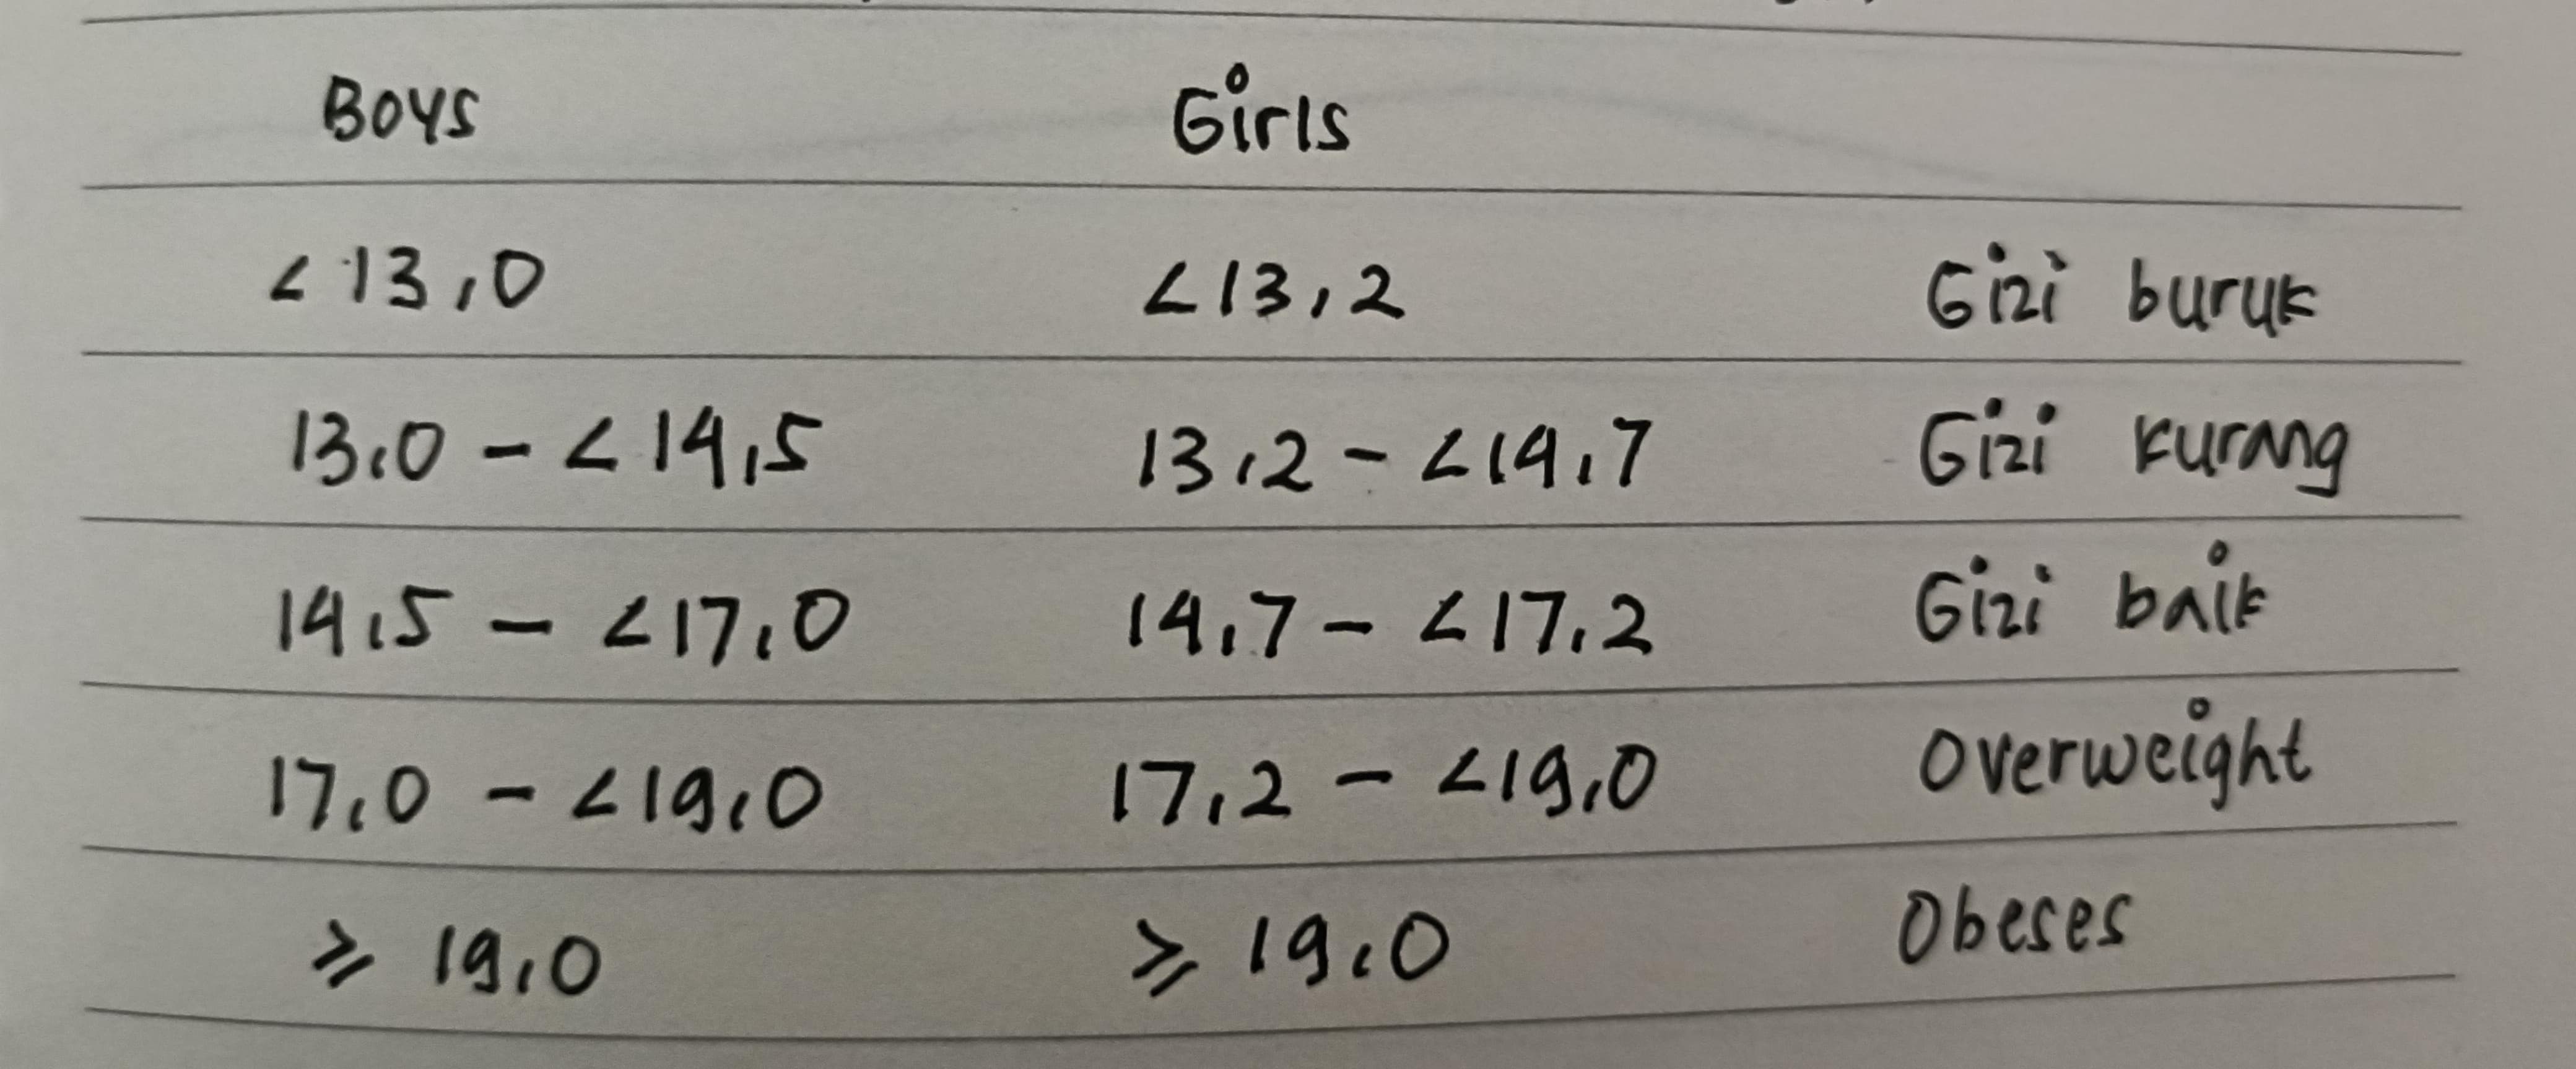 Boys Girls
<13,0 <13,2 Gizi buruk
13,0 - <14,5 13,2 - <14,7 Gizi kurang
14,5 - <17,0 14,7 - <17,2 Gizi baik
17,0 - <19,0 17,2 - <19,0 Overweight
≥ 19,0 ≥ 19,0 Obeses